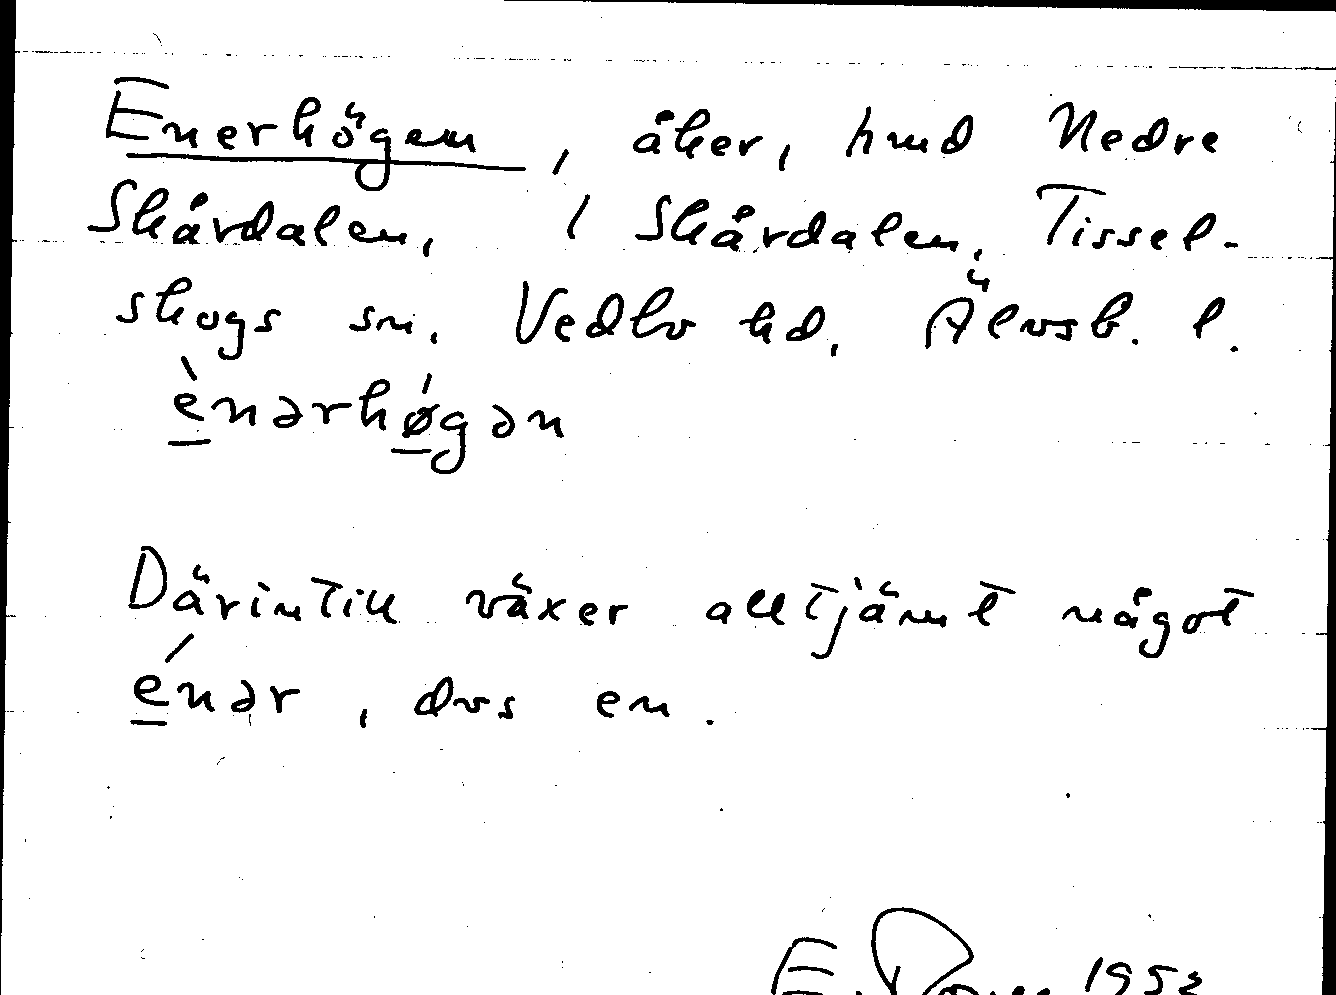 Enerhögen, åker, hmd Nedre
Skårdalen, 1 Skårdalen, Tissel-
skogs sn. Vedbo hd, Älvsb. l.
ènərhǿgən
Därintill växer alltjämt något
énər, dvs en.
E. 1952